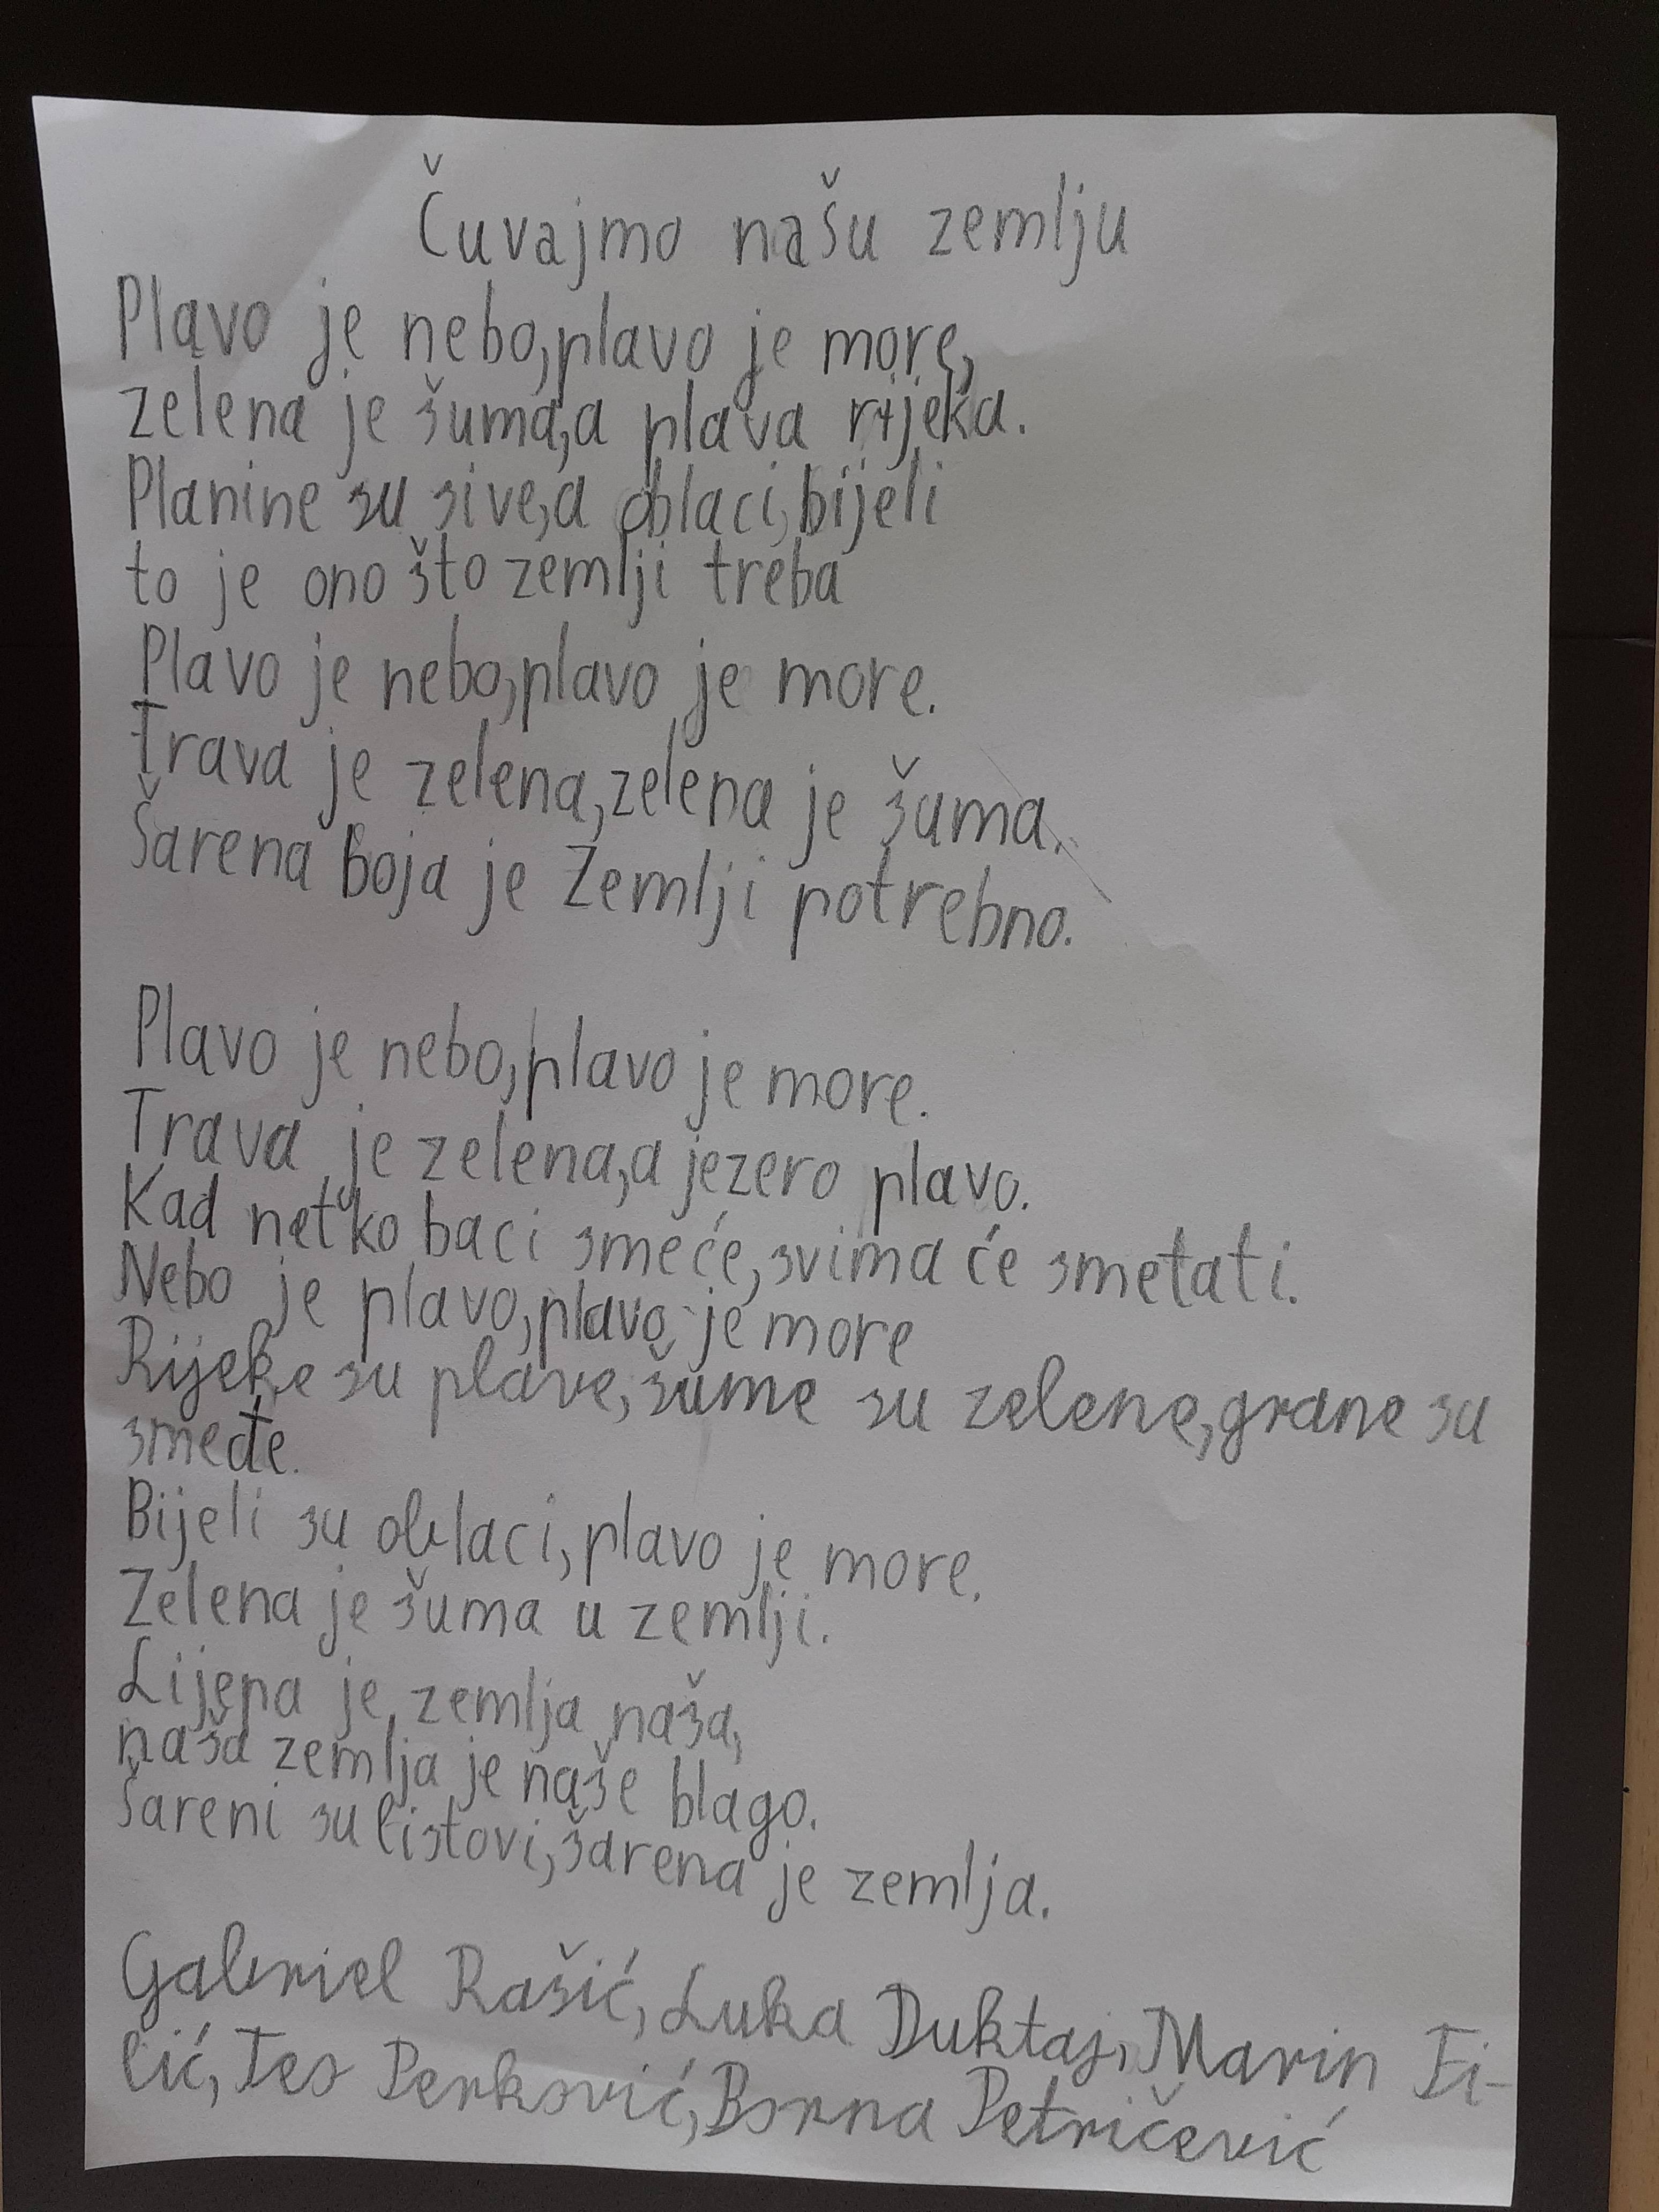 Čuvajmo našu zemlju
Plavo je nebo,plavo je more,
zelena je šuma,a plava rijeka.
Planine su sive,a oblaci,bijeli
to je ono što zemlji treba
Plavo je nebo,plavo je more.
Trava je zelena,zelena je šuma.
Šarena boja je Zemlji potrebno.
Plavo je nebo,plavo je more.
Trava je zelena,a jezero plavo.
Kad netko baci smeće,svima će smetati.
Nebo je plavo,plavo je more
Rijeke su plave,šume su zelene,grane su
smeđe.
Bijeli su oblaci,plavo je more.
Zelena je šuma u zemlji.
Lijepa je zemlja naša,
naša zemlja je naše blago.
Šareni su listovi,šarena je zemlja.
Gabriel Rašić,Luka Duktaj,Marin Fi-
lić,Teo Perković,Borna Petričević